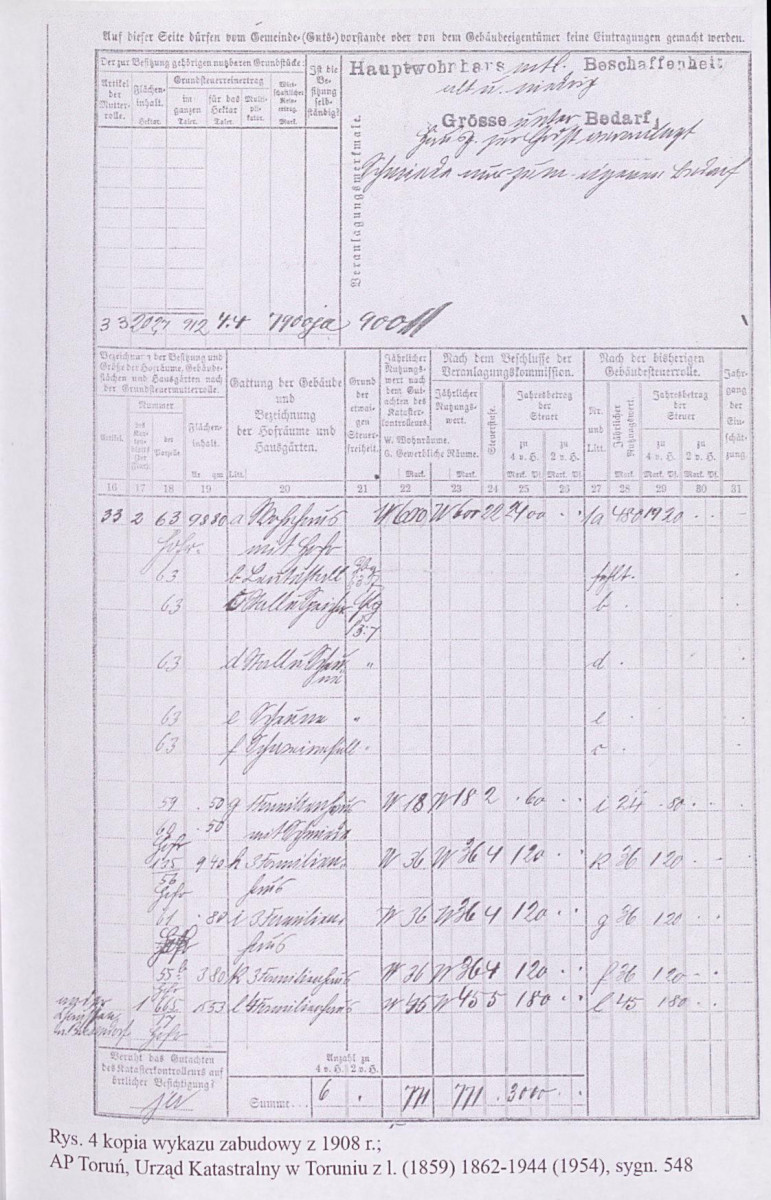 Auf dieser Seite dürfen vom Gemeinde-(Guts-)vorstande oder von dem Gebäudeeigentümer keine Eintragungen gemacht werden.
Der zur Besitzung gehörigen nutzbaren Grundstücke:
Artikel der Mutterrolle.
Flächeninhalt.
Hektar.
Grundsteuerreinertrag
im ganzen
Taler.
für das Hektar
Taler.
Multiplikator.
Mark.
Ist die Besitzung selbständig?
Veranlagungsmerkmale.
Hauptwohrhars mtl. Beschaffenheit
alt u. niedrig
Grösse unter Bedarf
Schmiede nur zum eigenen Bedarf
33 2027 912 4.4 7900 ja 900
Bezeichnung der Besitzung und Größe der Hofräume, Gebäudeflächen und Hausgärten nach der Grundsteuermutterrolle.
Nummer
Artikel.
des Kartenblatts
der Parzelle
Flächeninhalt.
Ar qm
Gattung der Gebäude und Bezeichnung der Hofräume und Hausgärten.
Litt.
Grund der etwaigen Steuerfreiheit.
Jährlicher Nutzungswert nach dem Gutachten des Katasterkontrolleurs.
W. Wohnräume.
G. Gewerbliche Räume.
Mark.
Nach dem Beschlusse der Veranlagungskommission.
Jährlicher Nutzungswert.
Mark.
Steuerstufe.
Jahresbetrag der Steuer
zu 4 v. H.
Mark Pf.
zu 2 v. H.
Mark Pf.
Nach der bisherigen Gebäudesteuerrolle.
Nr. und Litt.
Jährlicher Nutzungswert.
Mark.
Jahresbetrag der Steuer
zu 4 v. H.
Mark. Pf.
zu 2 v. H.
Mark. Pf.
Jahrgang der Einschätzung.
16 17 18 19 20 21 22 23 24 25 26 27 28 29 30 31
33 2 63 9880 a Wohnhaus W 600 W 600 22 2400 1a 480 1920
mit Hofr
63 b fehlt.
63 Stall u Speicher b
63 d Stall u Scheune " d
63 e Scheune " e
63 f Schweinestall " c
59 50 g Familienhaus W 18 W 18 2 60 i 24 80
60 50 mit Schmiede
Hofr
940 h 3 Familien- W 36 W 36 4 120 k 36 120
56 haus
Hofr
61 80 i 3 Familien- W 36 W 36 4 120 g 36 120
haus
55 380 k 3 Familienhaus W 36 W 36 4 120 f 36 120
Hofr
1 l 4 Familienhaus W 45 W 45 5 180 l 45 180
Hofr
Beruht das Gutachten des Katasterkontrolleurs auf örtlicher Besichtigung?
ja
Anzahl zu
4 v. H. 2 v. H.
Summe... 6 771 771 3000
Rys. 4 kopia wykazu zabudowy z 1908 r.;
AP Toruń, Urząd Katastralny w Toruniu z l. (1859) 1862-1944 (1954), sygn. 548